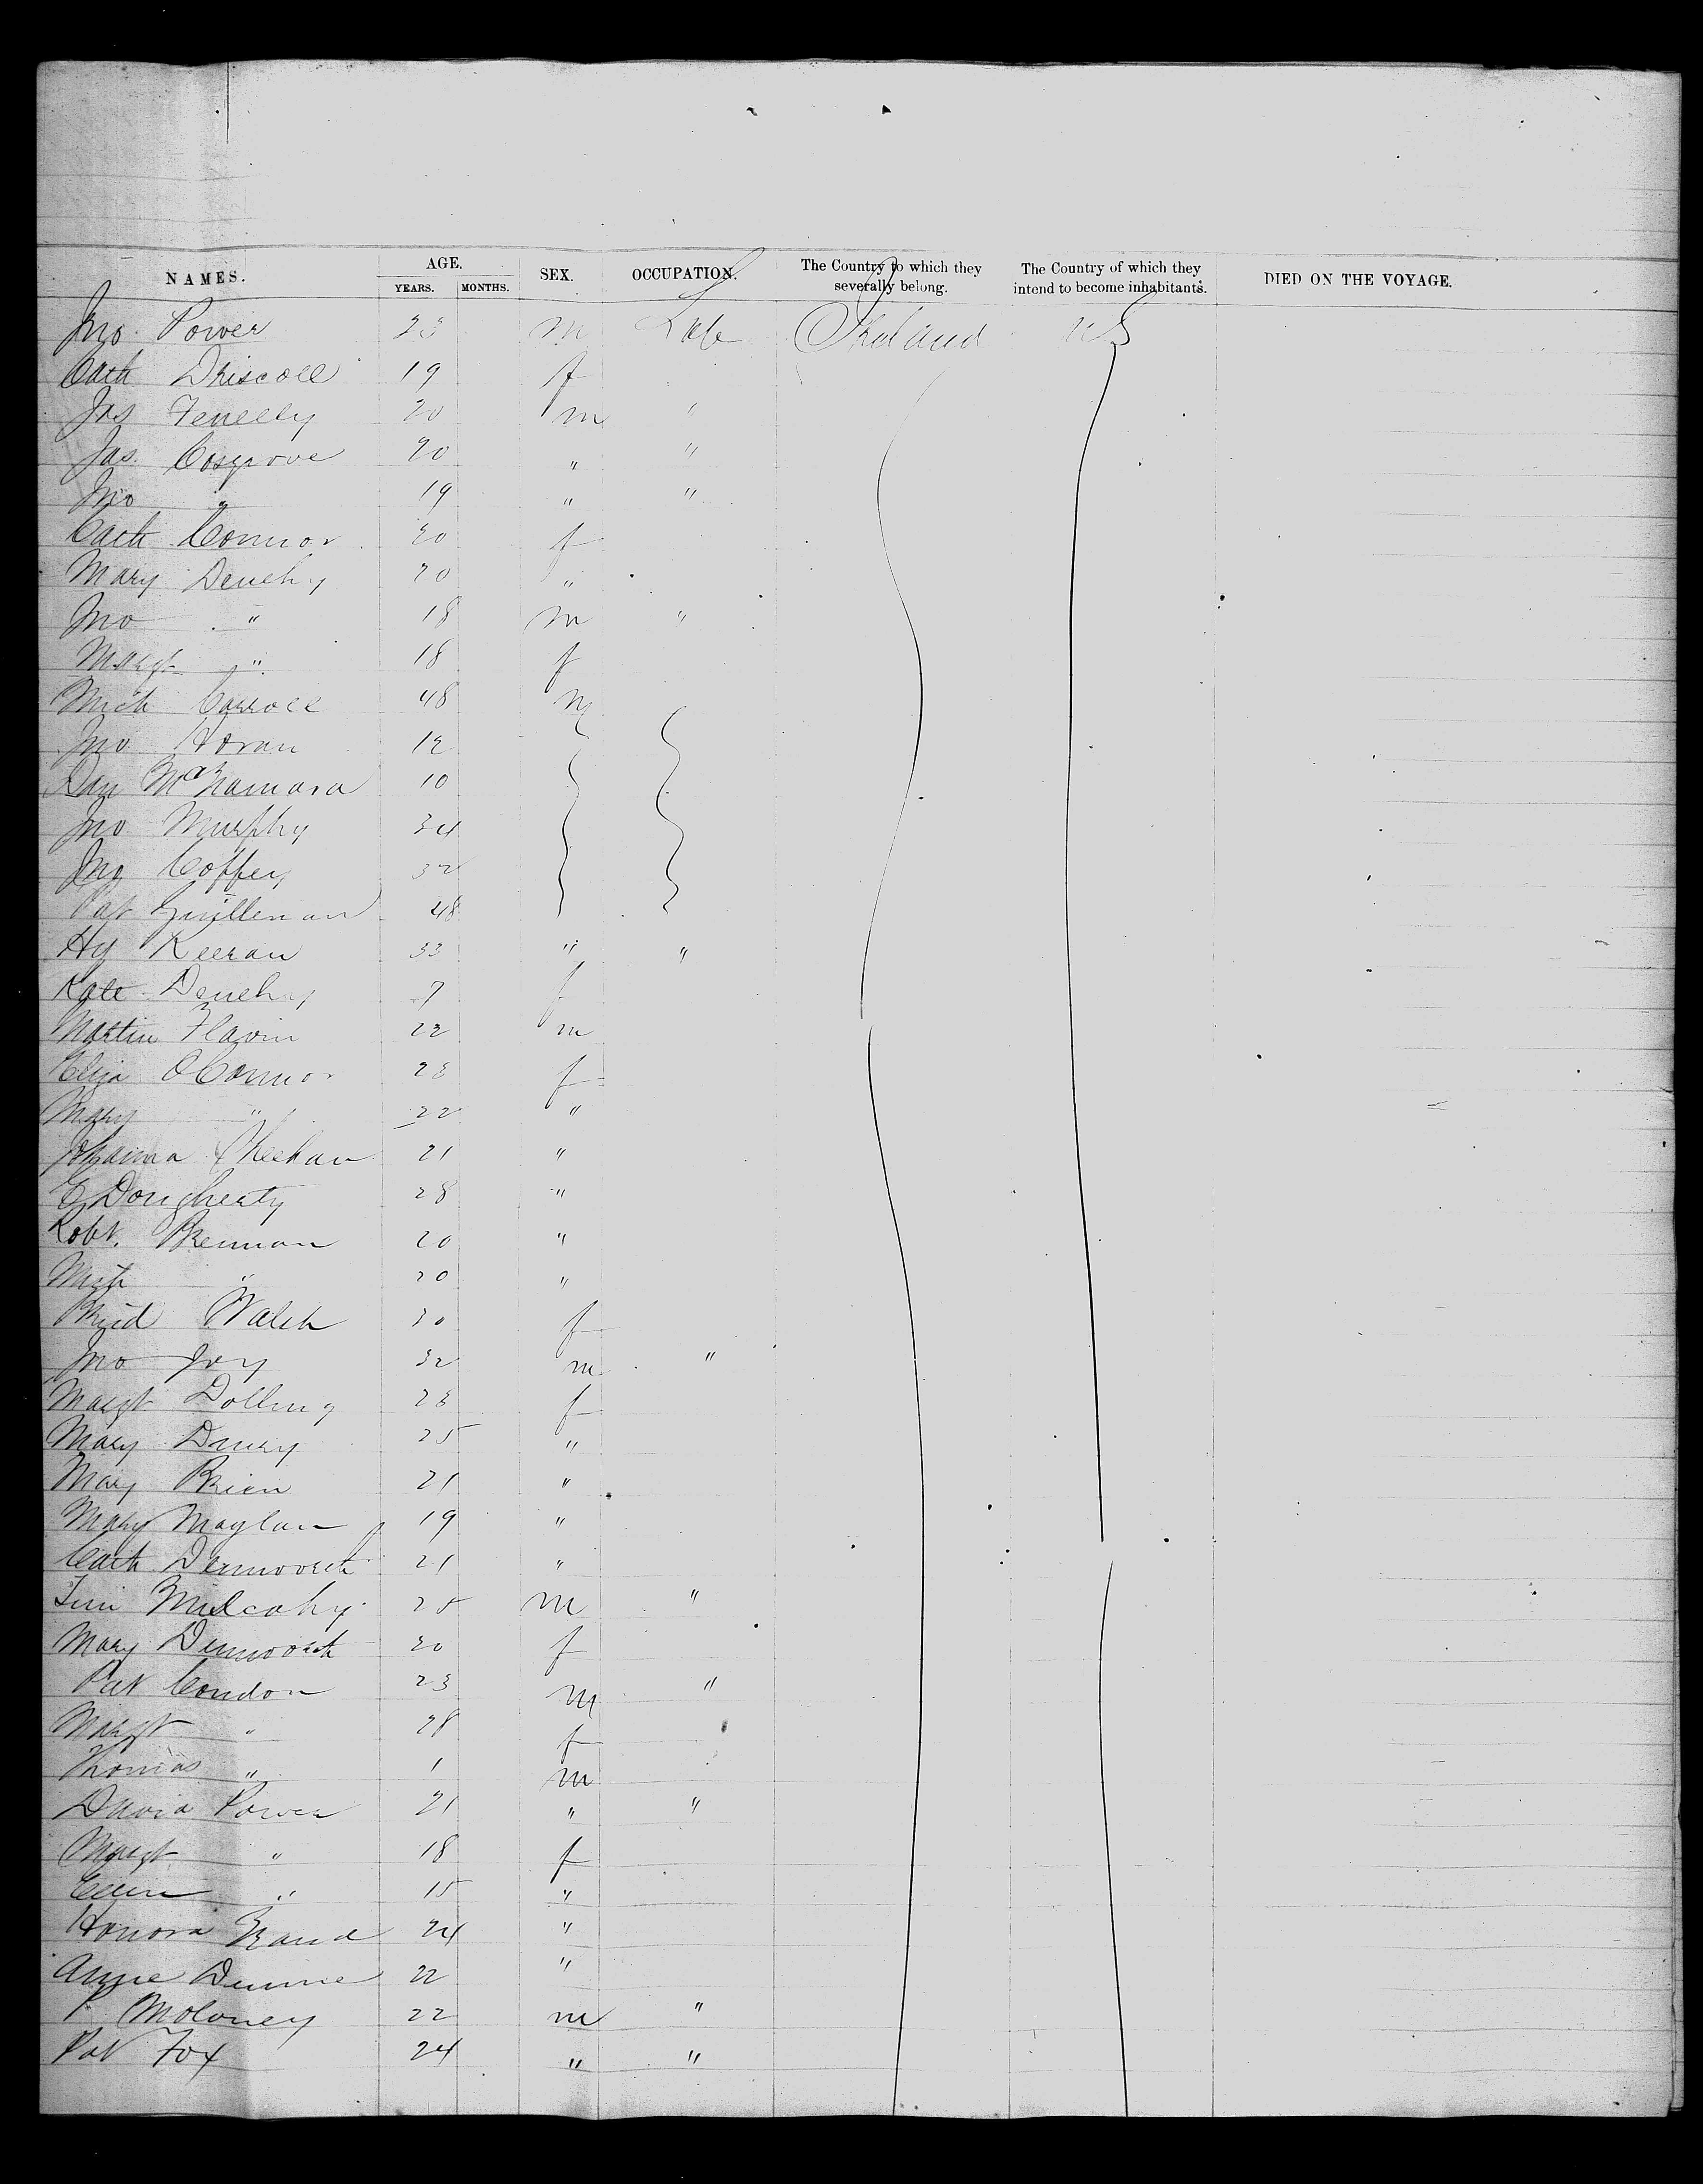 NAMES. AGE. YEARS. MONTHS. SEX. OCCUPATION. The Country to which they severally belong. The Country of which they intend to become inhabitants. DIED ON THE VOYAGE.
Jno Power 23 m Lab Ireland US
Cath Driscoll 19 f
Jas Fenelly 20 m "
Jas. Cosgrove 20 " "
Jno " 19 " "
Cath Connor 20 f
Mary Denehy 20 "
Jno " 18 m "
Margt " 18 f
Mich Carroll 48 m
Jno Horan 12
Dan McNamara 10
Jno Murphy 34
Jno Coffey 32
Pat 48
Hy Keeran 33 " "
Kate Denehy 7 f
Martin Flavin 22 m
Eliza OConnor 23 f
Mary " 22 "
Johanna Sheehan 21 "
E Dougherty 28 "
Robt. Brennan 20 "
" 20 "
Brid Walsh 30 f
Jno Joy 32 m "
Margt Dolling 23 f
Mary Drury 25 "
Mary Brien 21 "
Mary Moylan 19 "
Cath 21 "
Tim Mulcahy 25 m "
Mary f
Pat Condon 23 m "
Margt " 28 f
Thomas " 1 m
David Power 21 " "
Margt " 18 f
Ellen " 15 "
Honora 24 "
Anne Dunne 22 "
P Moloney 22 m "
Pat Fox 24 " "